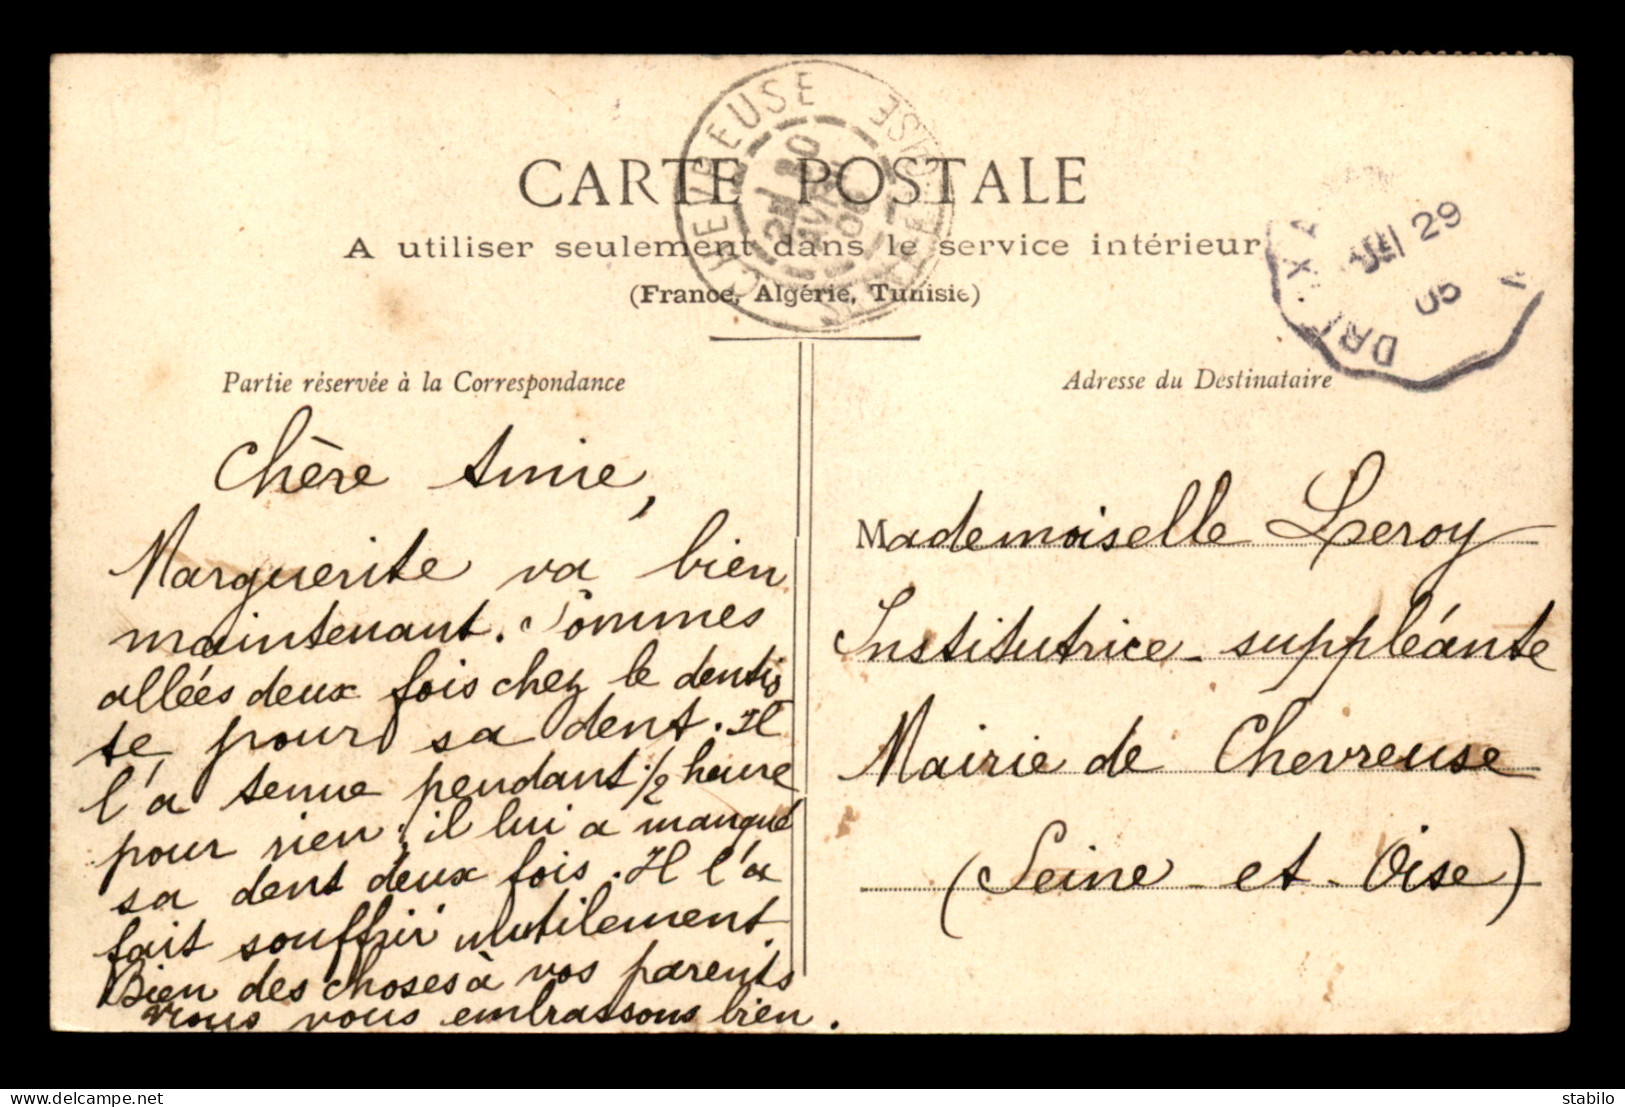 CARTE POSTALE
A utiliser seulement dans le service intérieur
(France, Algérie, Tunisie)
CHEVREUSE
SEINE-ET-OISE
30
AVRIL
29
05
Partie réservée à la Correspondance
Adresse du Destinataire
Chère Amie,
Marguerite va bien
maintenant. Sommes
allées deux fois chez le dentis
te pour sa dent. Il
l'a tenue pendant 1/2 heure
pour rien ; il lui a manqué
sa dent deux fois. Il l'a
fait souffrir inutilement.
Bien des choses à vos parents
nous vous embrassons bien.
Mademoiselle Leroy
Institutrice suppléante
Mairie de Chevreuse
(Seine et Oise)
delcampe.net
stabilo